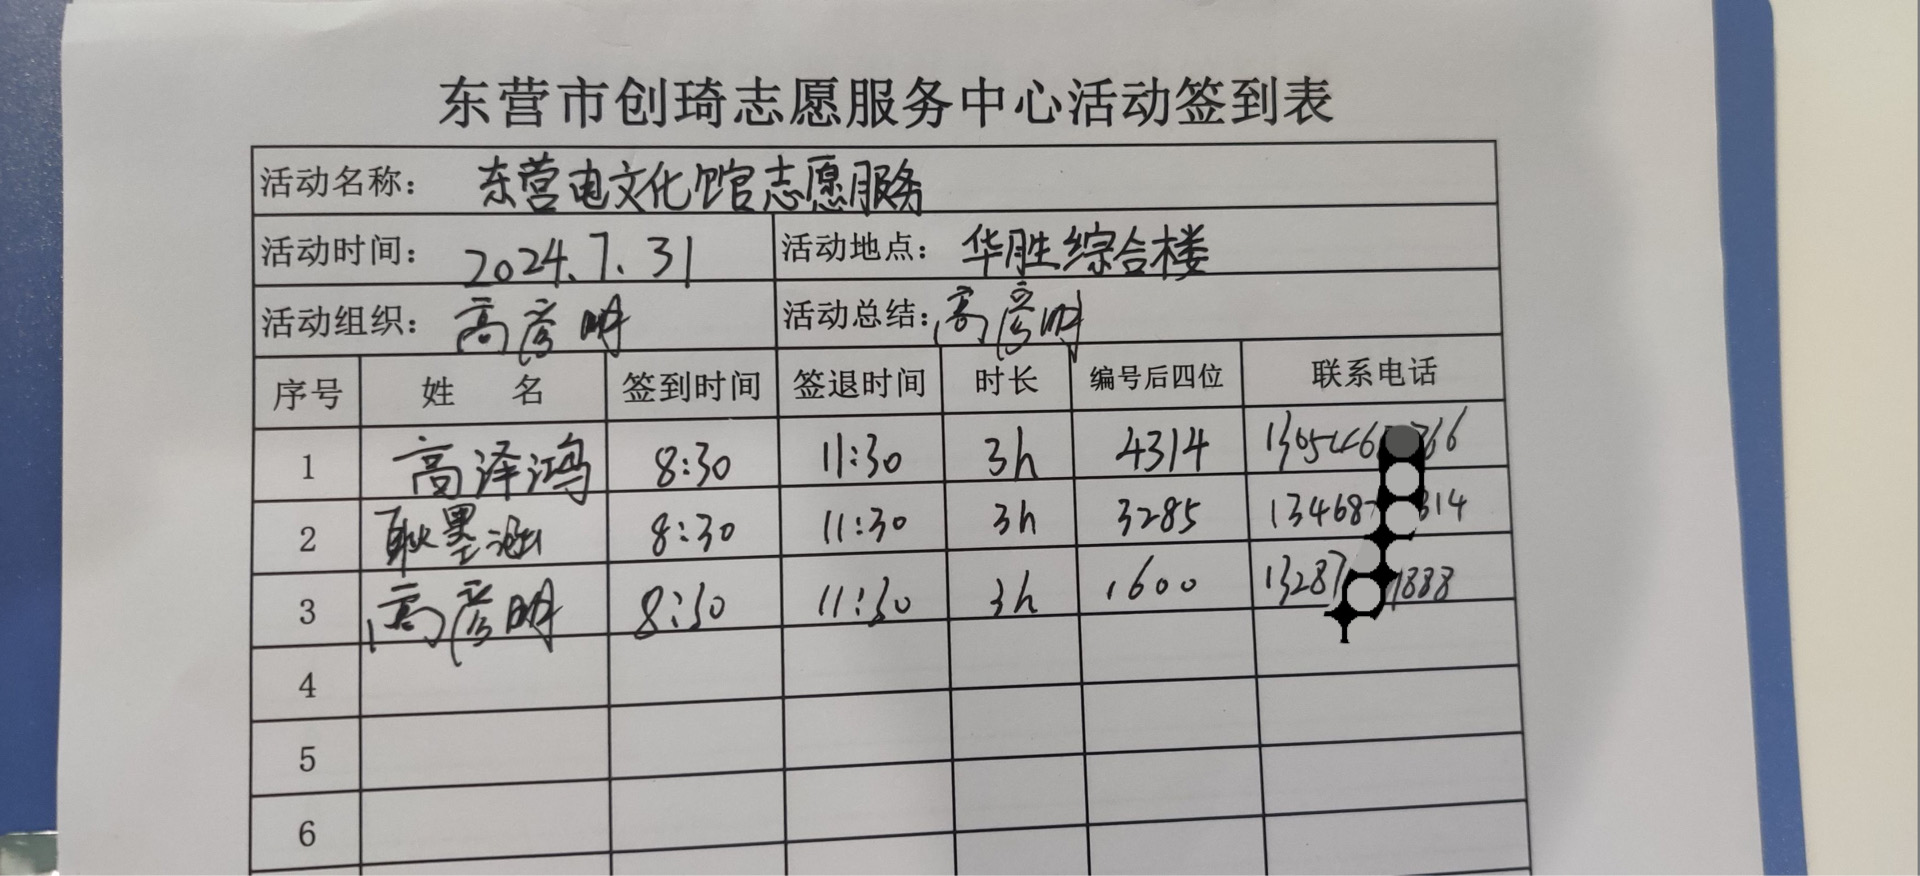 东营市创琦志愿服务中心活动签到表
活动名称： 东营电文化馆志愿服务
活动时间： 2024.7.31 活动地点： 华胜综合楼
活动组织： 高彦明 活动总结： 高彦明
序号 姓 名 签到时间 签退时间 时长 编号后四位 联系电话
1 高泽鸿 8:30 11:30 3h 4314
2 耿墨涵 8:30 11:30 3h 3285 13468 314
3 高彦明 8:30 11:30 3h 1600 13287 1888
4
5
6